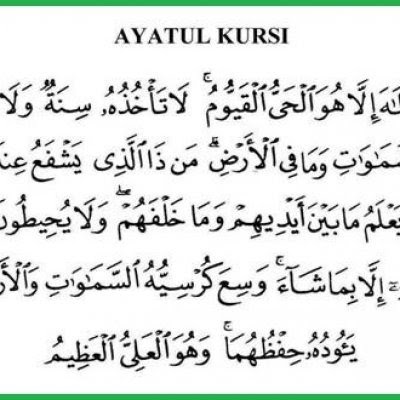 AYATUL KURSI
إِلَّا هُوَ الْحَيُّ الْقَيُّومُ ۚ لَا تَأْخُذُهُ سِنَةٌ وَلَا
وَمَا فِي الْأَرْضِ ۗ مَن ذَا الَّذِي يَشْفَعُ
يَعْلَمُ مَا بَيْنَ أَيْدِيهِمْ وَمَا خَلْفَهُمْ ۖ وَلَا
إِلَّا بِمَا شَاءَ ۚ وَسِعَ كُرْسِيُّهُ السَّمٰوٰتِ
يَئُودُهُ حِفْظُهُمَا ۚ وَهُوَ الْعَلِيُّ الْعَظِيمُ